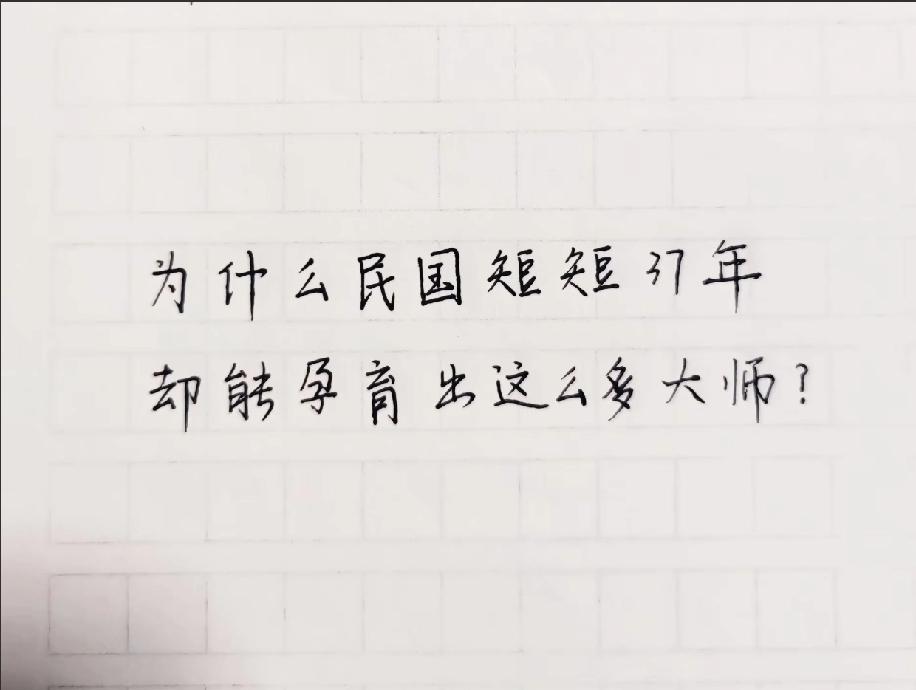 为什么民国短短37年
却能孕育出这么多大师?